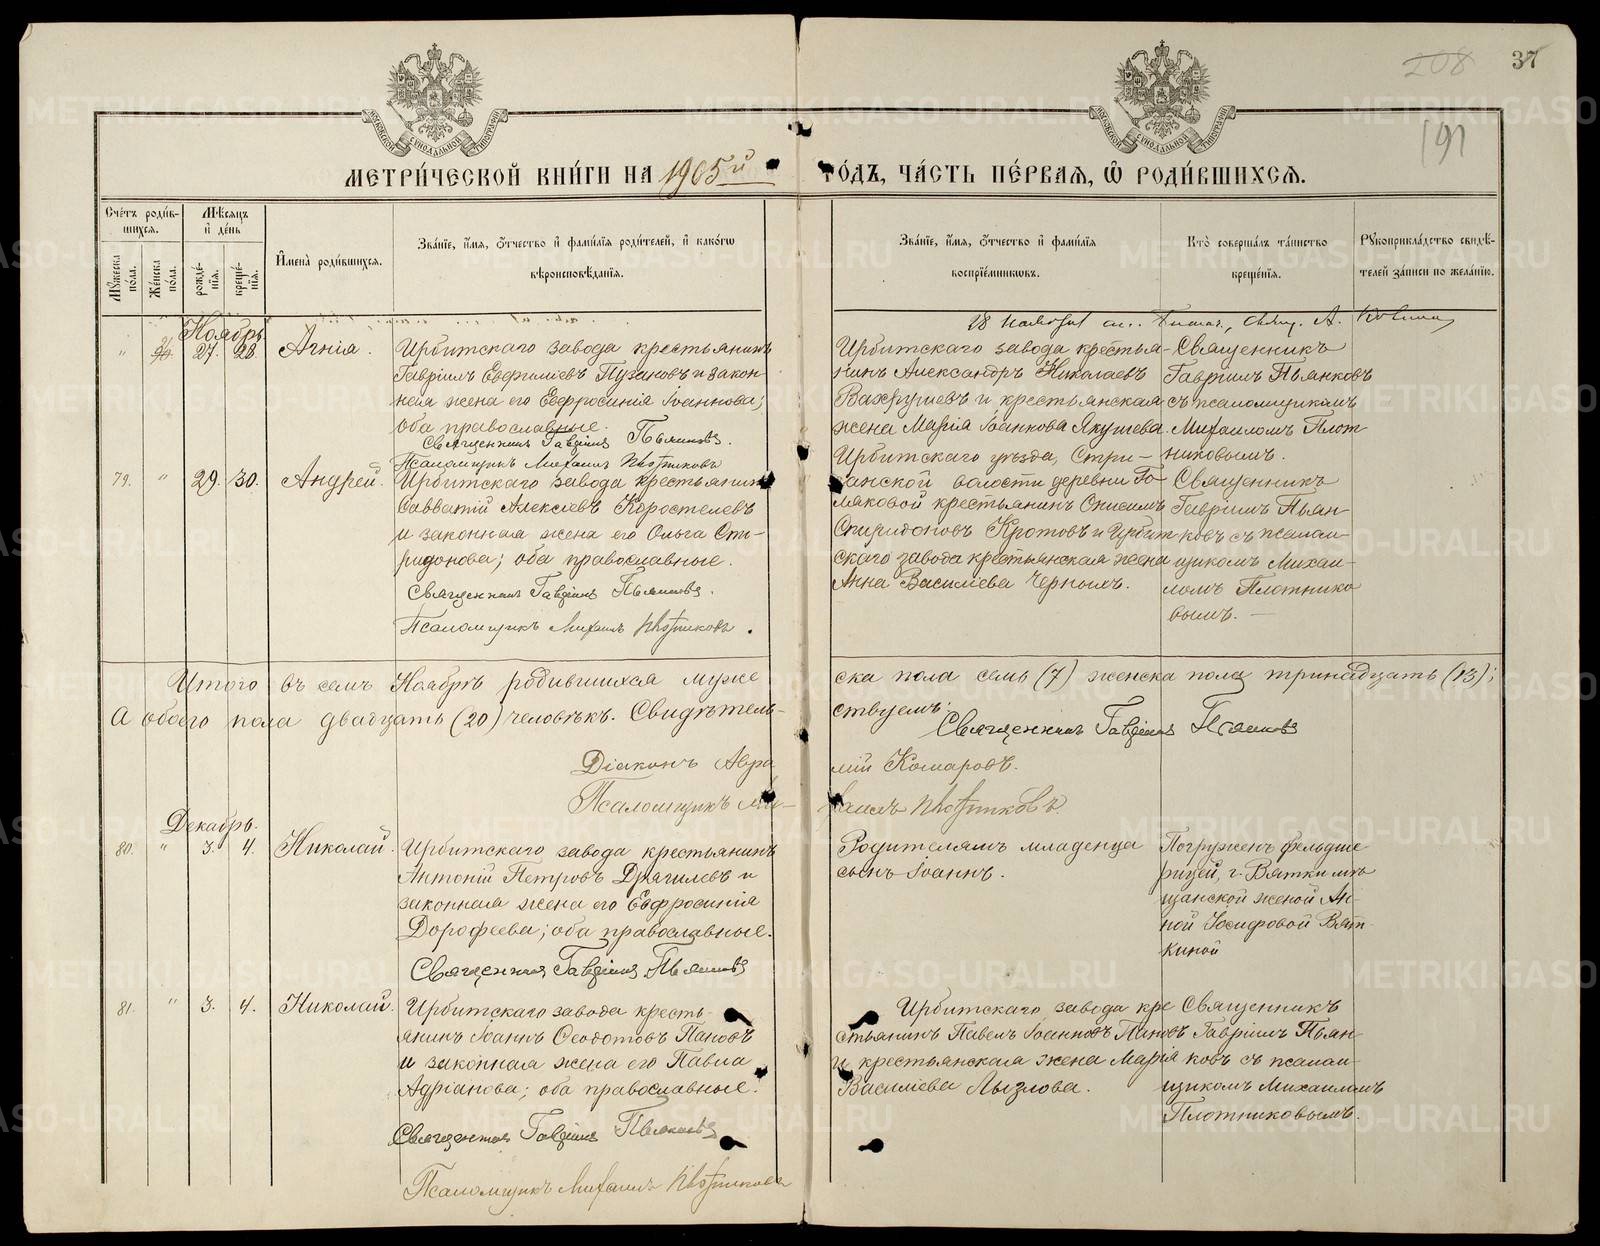 208 37
191
МОСКОВСКОЙ СѴНОДАЛЬНОЙ ТИПОГРАФІИ
МОСКОВСКОЙ СѴНОДАЛЬНОЙ ТИПОГРАФІИ
МЕТРИ́ЧЕСКОЙ КНИ́ГИ НА 1905й ГО́ДЪ, ЧА́СТЬ ПЕ́РВАЯ, Ѿ РОДИ́ВШИХСЯ.
Сче́тъ роди́вшихся.
Мꙋ́жеска по́ла.
Же́нска по́ла.
Мѣ́сяцъ и҆ де́нь
рожде́нїя.
креще́нїя.
И҆мена̀ роди́вшихся.
Зва́нїе, и҆́мя, ѻ҆́тчество и҆ фами́лїя роди́телей, и҆ како́гѡ
вѣроисповѣ́данїя.
Зва́нїе, и҆́мя, ѻ҆́тчество и҆ фами́лїя
воспрїе́мниковъ.
Кто̀ соверша́лъ та́инство
креще́нїя.
Рꙋкоприкла́дство свидѣ́телей за́писи по жела́нїю.
Ноябрь
" 27. 28. Агнія.
Ирбитскаго завода крестьянинъ
Гавріилъ Евфиміевъ Пузановъ и закон-
ная жена его Евфросинія Іоаннова;
оба православные.
Священникъ Гавріилъ Пьянковъ.
Псаломщикъ Михаилъ Плотниковъ
28 ноября
Ирбитскаго завода крестья-
нинъ Александръ Николаевъ
Вахрушевъ и крестьянская
жена Марія Іоаннова Якушева.
Священникъ
Гавріилъ Пьянковъ
съ псаломщикомъ
Михаиломъ Плот
никовымъ.
79. " 29. 30. Андрей.
Ирбитскаго завода крестьянинъ
Савватій Алексіевъ Коростелевъ
и законная жена его Ольга Спи-
ридонова; оба православные.
Священникъ Гавріилъ Пьянковъ.
Псаломщикъ Михаилъ Плотниковъ.
Ирбитскаго уѣзда, Стри-
ганской волости деревни Го-
ляковой крестьянинъ Онисимъ
Спиридоновъ Кротовъ и Ирбит
скаго завода крестьянская жена
Анна Васильева Черныхъ.
Священникъ
Гавріилъ Пьян-
ковъ съ псалом-
щикомъ Михаи-
ломъ Плотнико
вымъ. —
Итого въ семъ Ноябрѣ родившихся муже
ска пола семь (7) женска пола тринадцать (13);
А обоего пола двадцать (20) человѣкъ. Свидѣтель-
ствуемъ:
Священникъ Гавріилъ Пьянковъ
Діаконъ Авра
мій Комаровъ.
Псаломщикъ Ми-
хаилъ Плотниковъ.
Декабрь.
80. " 3. 4. Николай.
Ирбитскаго завода крестьянинъ
Антоній Петровъ Дрягилевъ и
законная жена его Евфросинія
Дорофеева; оба православные.
Священникъ Гавріилъ Пьянковъ
Родителямъ младенца
сынъ Іоаннъ.
Погруженъ фельдше
рицей, г. Вятки мѣ
щанской женой Ан-
ной Іосифовой Вят-
киной
81. " 3. 4. Николай.
Ирбитскаго завода кресть-
янинъ Іоаннъ Ѳеодотовъ Пановъ
и законная жена его Павла
Адріанова; оба православные.
Священникъ Гавріилъ Пьянковъ
Псаломщикъ Михаилъ Плотниковъ
Ирбитскаго завода кре
стьянинъ Павелъ Іоанновъ Пановъ
и крестьянская жена Марія
Васильева Лызлова.
Священникъ
Гавріилъ Пьян-
ковъ съ псалом-
щикомъ Михаиломъ
Плотниковымъ.